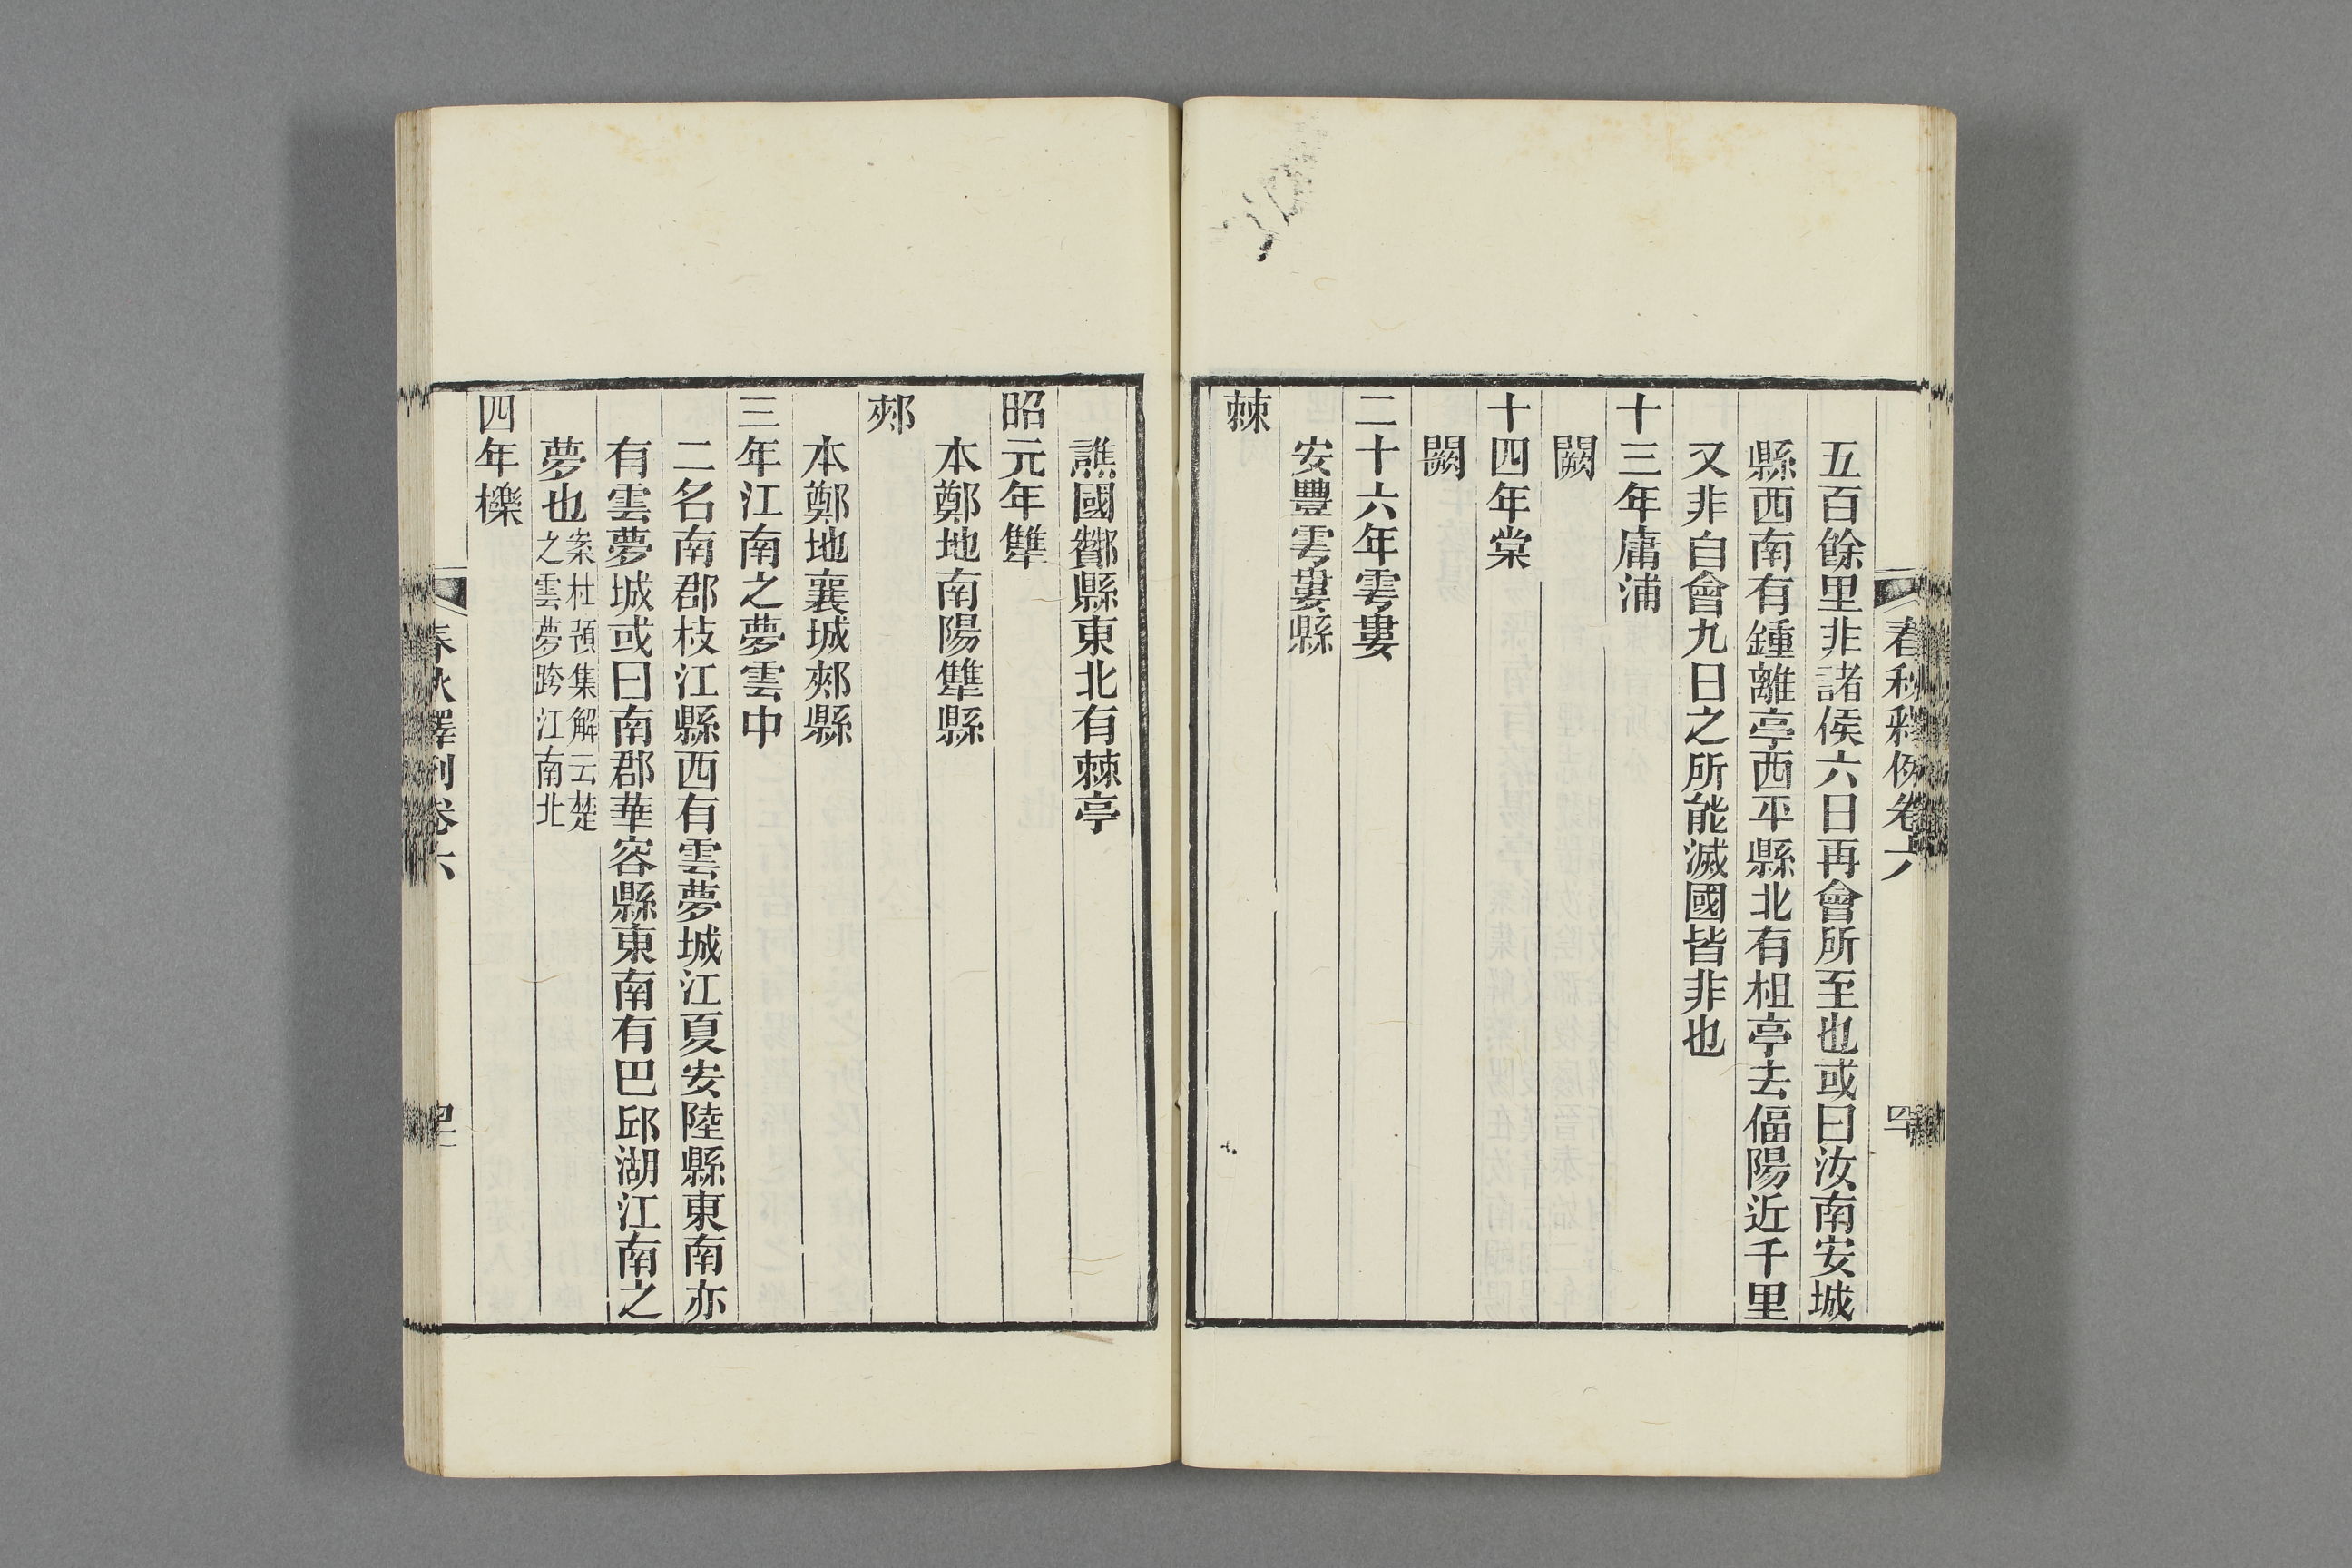 春秋釋例卷六
五百餘里非諸侯六日再會所至也或曰汝南安城
縣西南有鍾離亭西平縣北有柤亭去偪陽近千里
又非自會九日之所能滅國皆非也
十三年庸浦
闕
十四年棠
闕
二十六年雩婁
安豐雩婁縣
棘
譙國酇縣東北有棘亭
昭元年犨
本鄭地南陽犨縣
郟
本鄭地襄城郟縣
三年江南之夢雲中
二名南郡枝江縣西有雲夢城江夏安陸縣東南亦
有雲夢城或曰南郡華容縣東南有巴邱湖江南之
夢也案杜預集解云楚
之雲夢跨江南北
四年櫟
春秋釋例卷六